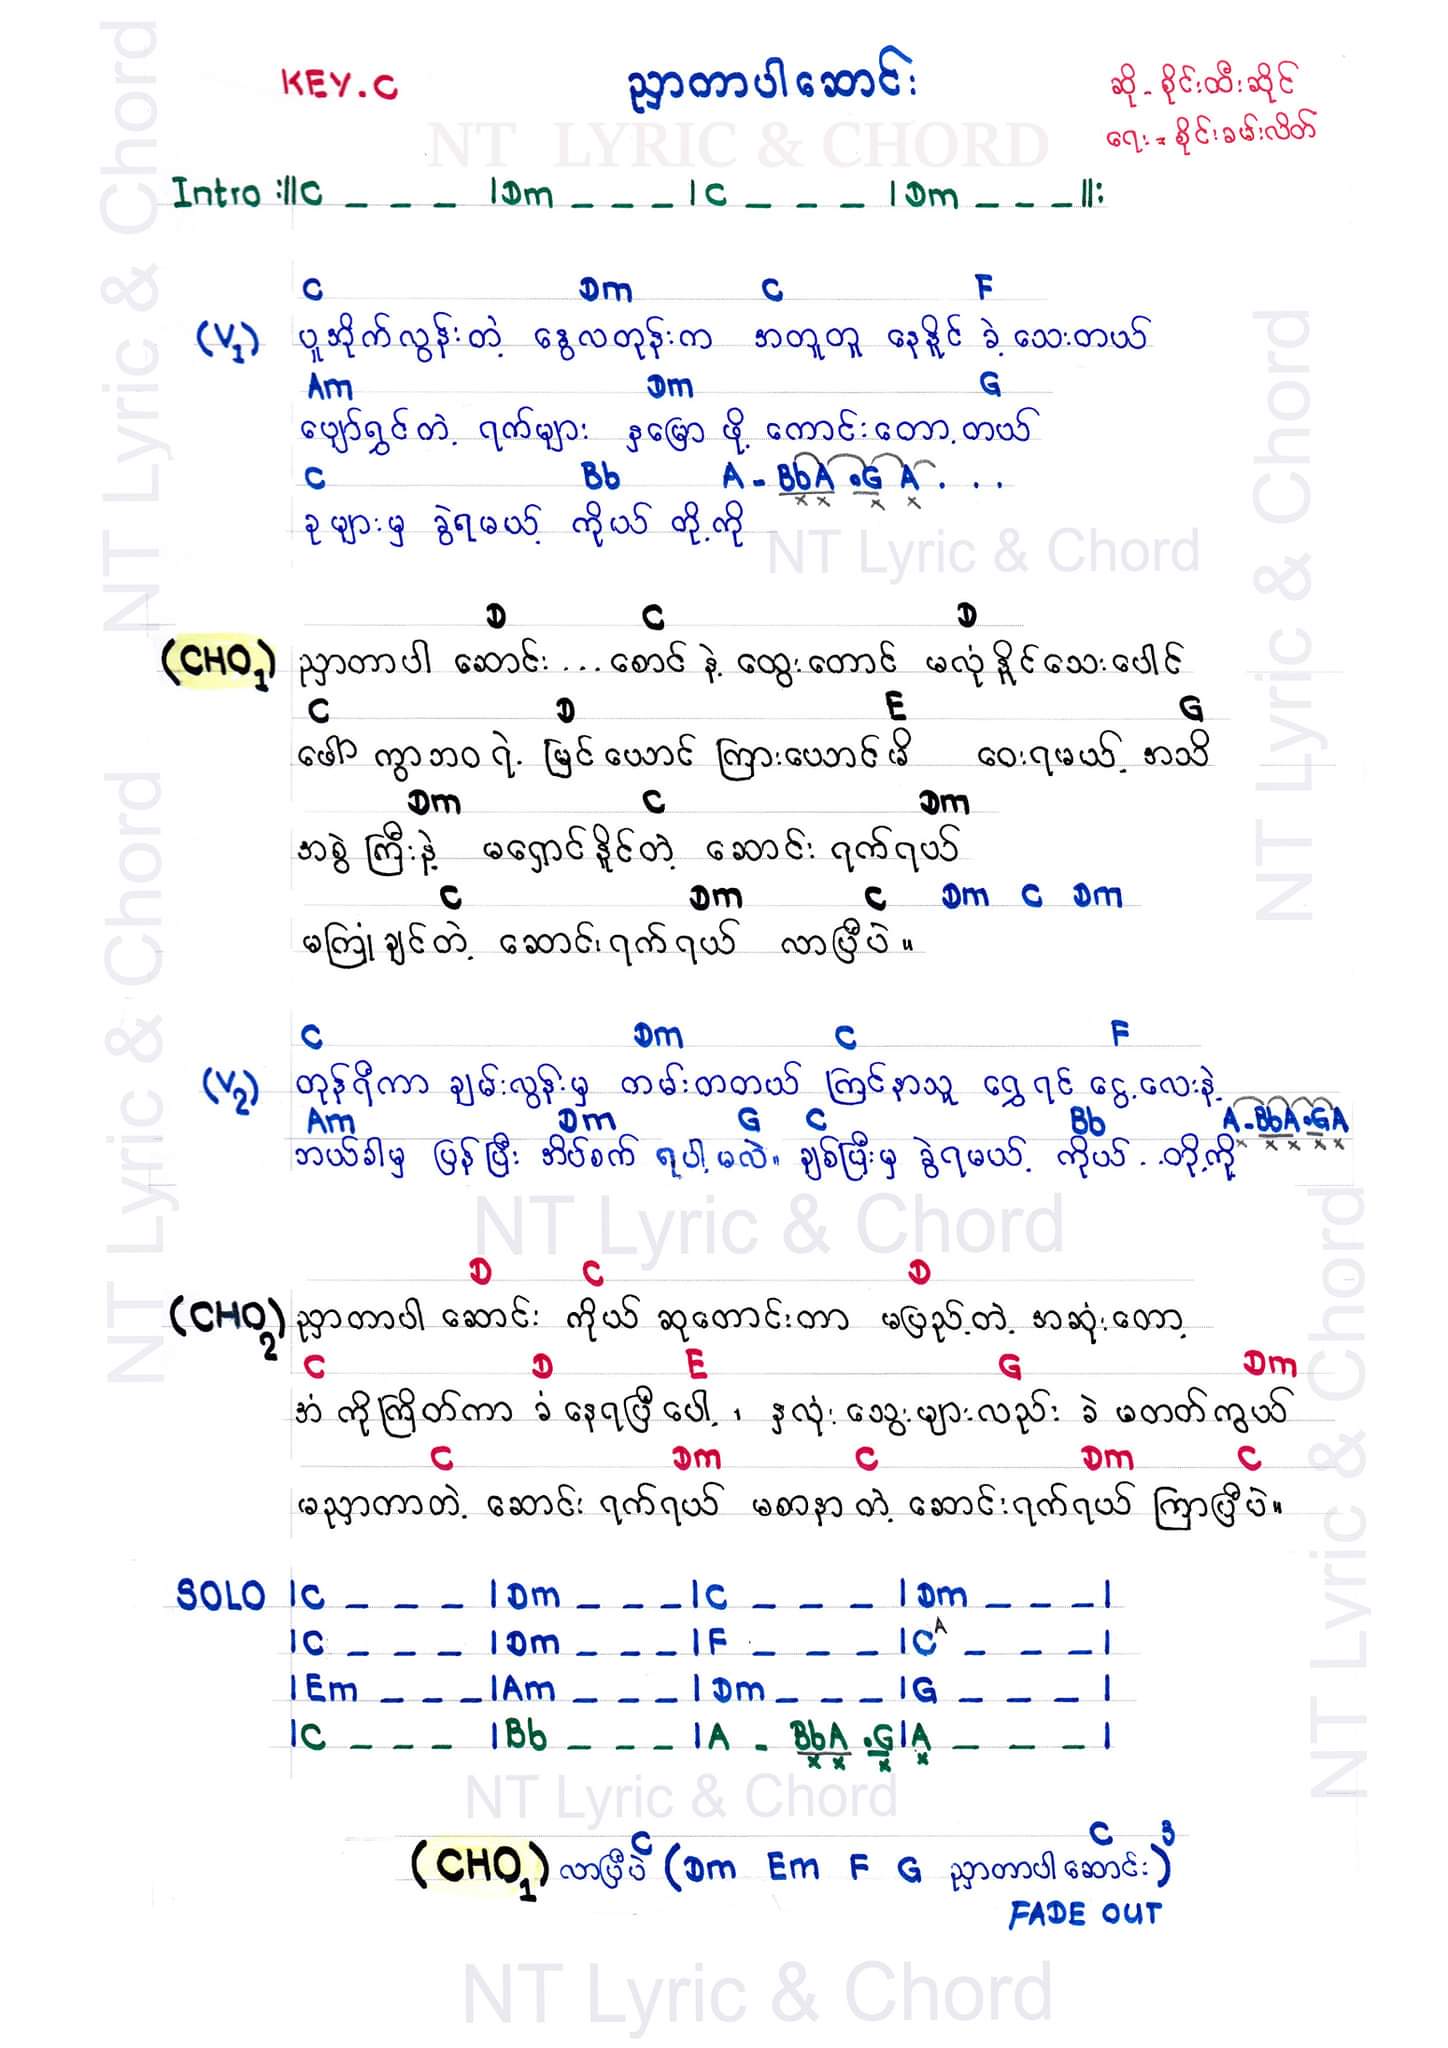 KEY.C
ညှာတာပါဆောင်း
ဆို - စိုင်းထီးဆိုင်
ရေး = စိုင်းခမ်းလိတ်
NT LYRIC & CHORD
Intro :||C _ _ _ |Dm _ _ _ |C _ _ _ |Dm _ _ _ ||:
C Dm C F
(V1) ပူအိုက်လွန်းတဲ့ နွေလတုန်းက အတူတူ နေနိူင် ခဲ့ သေးတယ်
Am Dm G
ပျော်ရွှင်တဲ့ ရက်များ နှမြော ဖို့ ကောင်းတော့တယ်
C Bb A - BbA .G A . . .
ခုများမှ ခွဲရမယ့် ကိုယ် တို့ကို
NT Lyric & Chord
D C D
(CHO1) ညှာတာပါ ဆောင်း ... စောင် နဲ့ ထွေးတောင် မလုံနိူင်သေးပေါင်
C D E G
ဖေါ် ကွာဘဝ ရဲ့ မြင်ယောင် ကြားယောင်မိ ဝေးရမယ့် အသိ
Dm C Dm
အစွဲ ကြီးနဲ့ မရှောင်နိူင်တဲ့ ဆောင်း ရက်ရယ်
C Dm C Dm C Dm
မကြုံချင်တဲ့ ဆောင်းရက်ရယ် လာပြီပဲ။
C Dm C F
(V2) တုန်ရီကာ ချမ်းလွန်းမှ တမ်းတတယ် ကြင်နာသူ ရွှေရင် ငွေ့လေးနဲ့
Am Dm G C Bb A-BbA.GA
ဘယ်ခါမှ ပြန်ပြီး အိပ်စက် ရပါ့မလဲ။ ချစ်ပြီးမှ ခွဲရမယ့် ကိုယ်..တို့ကို
NT Lyric & Chord
D C D
(CHO2) ညှာတာပါ ဆောင်း ကိုယ် ဆုတောင်းတာ မပြည့်တဲ့ အဆုံးတော့
C D E G Dm
အံ ကိုကြိတ်ကာ ခံ နေရပြီပေါ့ ၊ နှလုံး သွေးများလည်း ခဲ မတတ်ကွယ်
C Dm C Dm C
မညှာတာတဲ့ ဆောင်း ရက်ရယ် မစာနာတဲ့ ဆောင်းရက်ရယ် ကြာပြီပဲ။
SOLO |C _ _ _ |Dm _ _ _ |C _ _ _ |Dm _ _ _ |
|C _ _ _ |Dm _ _ _ |F _ _ _ |C^A _ _ _ |
|Em _ _ _ |Am _ _ _ |Dm _ _ _ |G _ _ _ |
|C _ _ _ |Bb _ _ _ |A - BbA .G|A _ _ _ |
NT Lyric & Chord
C C
(CHO1) လာပြီပဲ (Dm Em F G ညှာတာပါဆောင်း)3
FADE OUT
NT Lyric & Chord
NT Lyric & Chord
NT Lyric & Chord
NT Lyric & Chord
NT Lyric & Chord